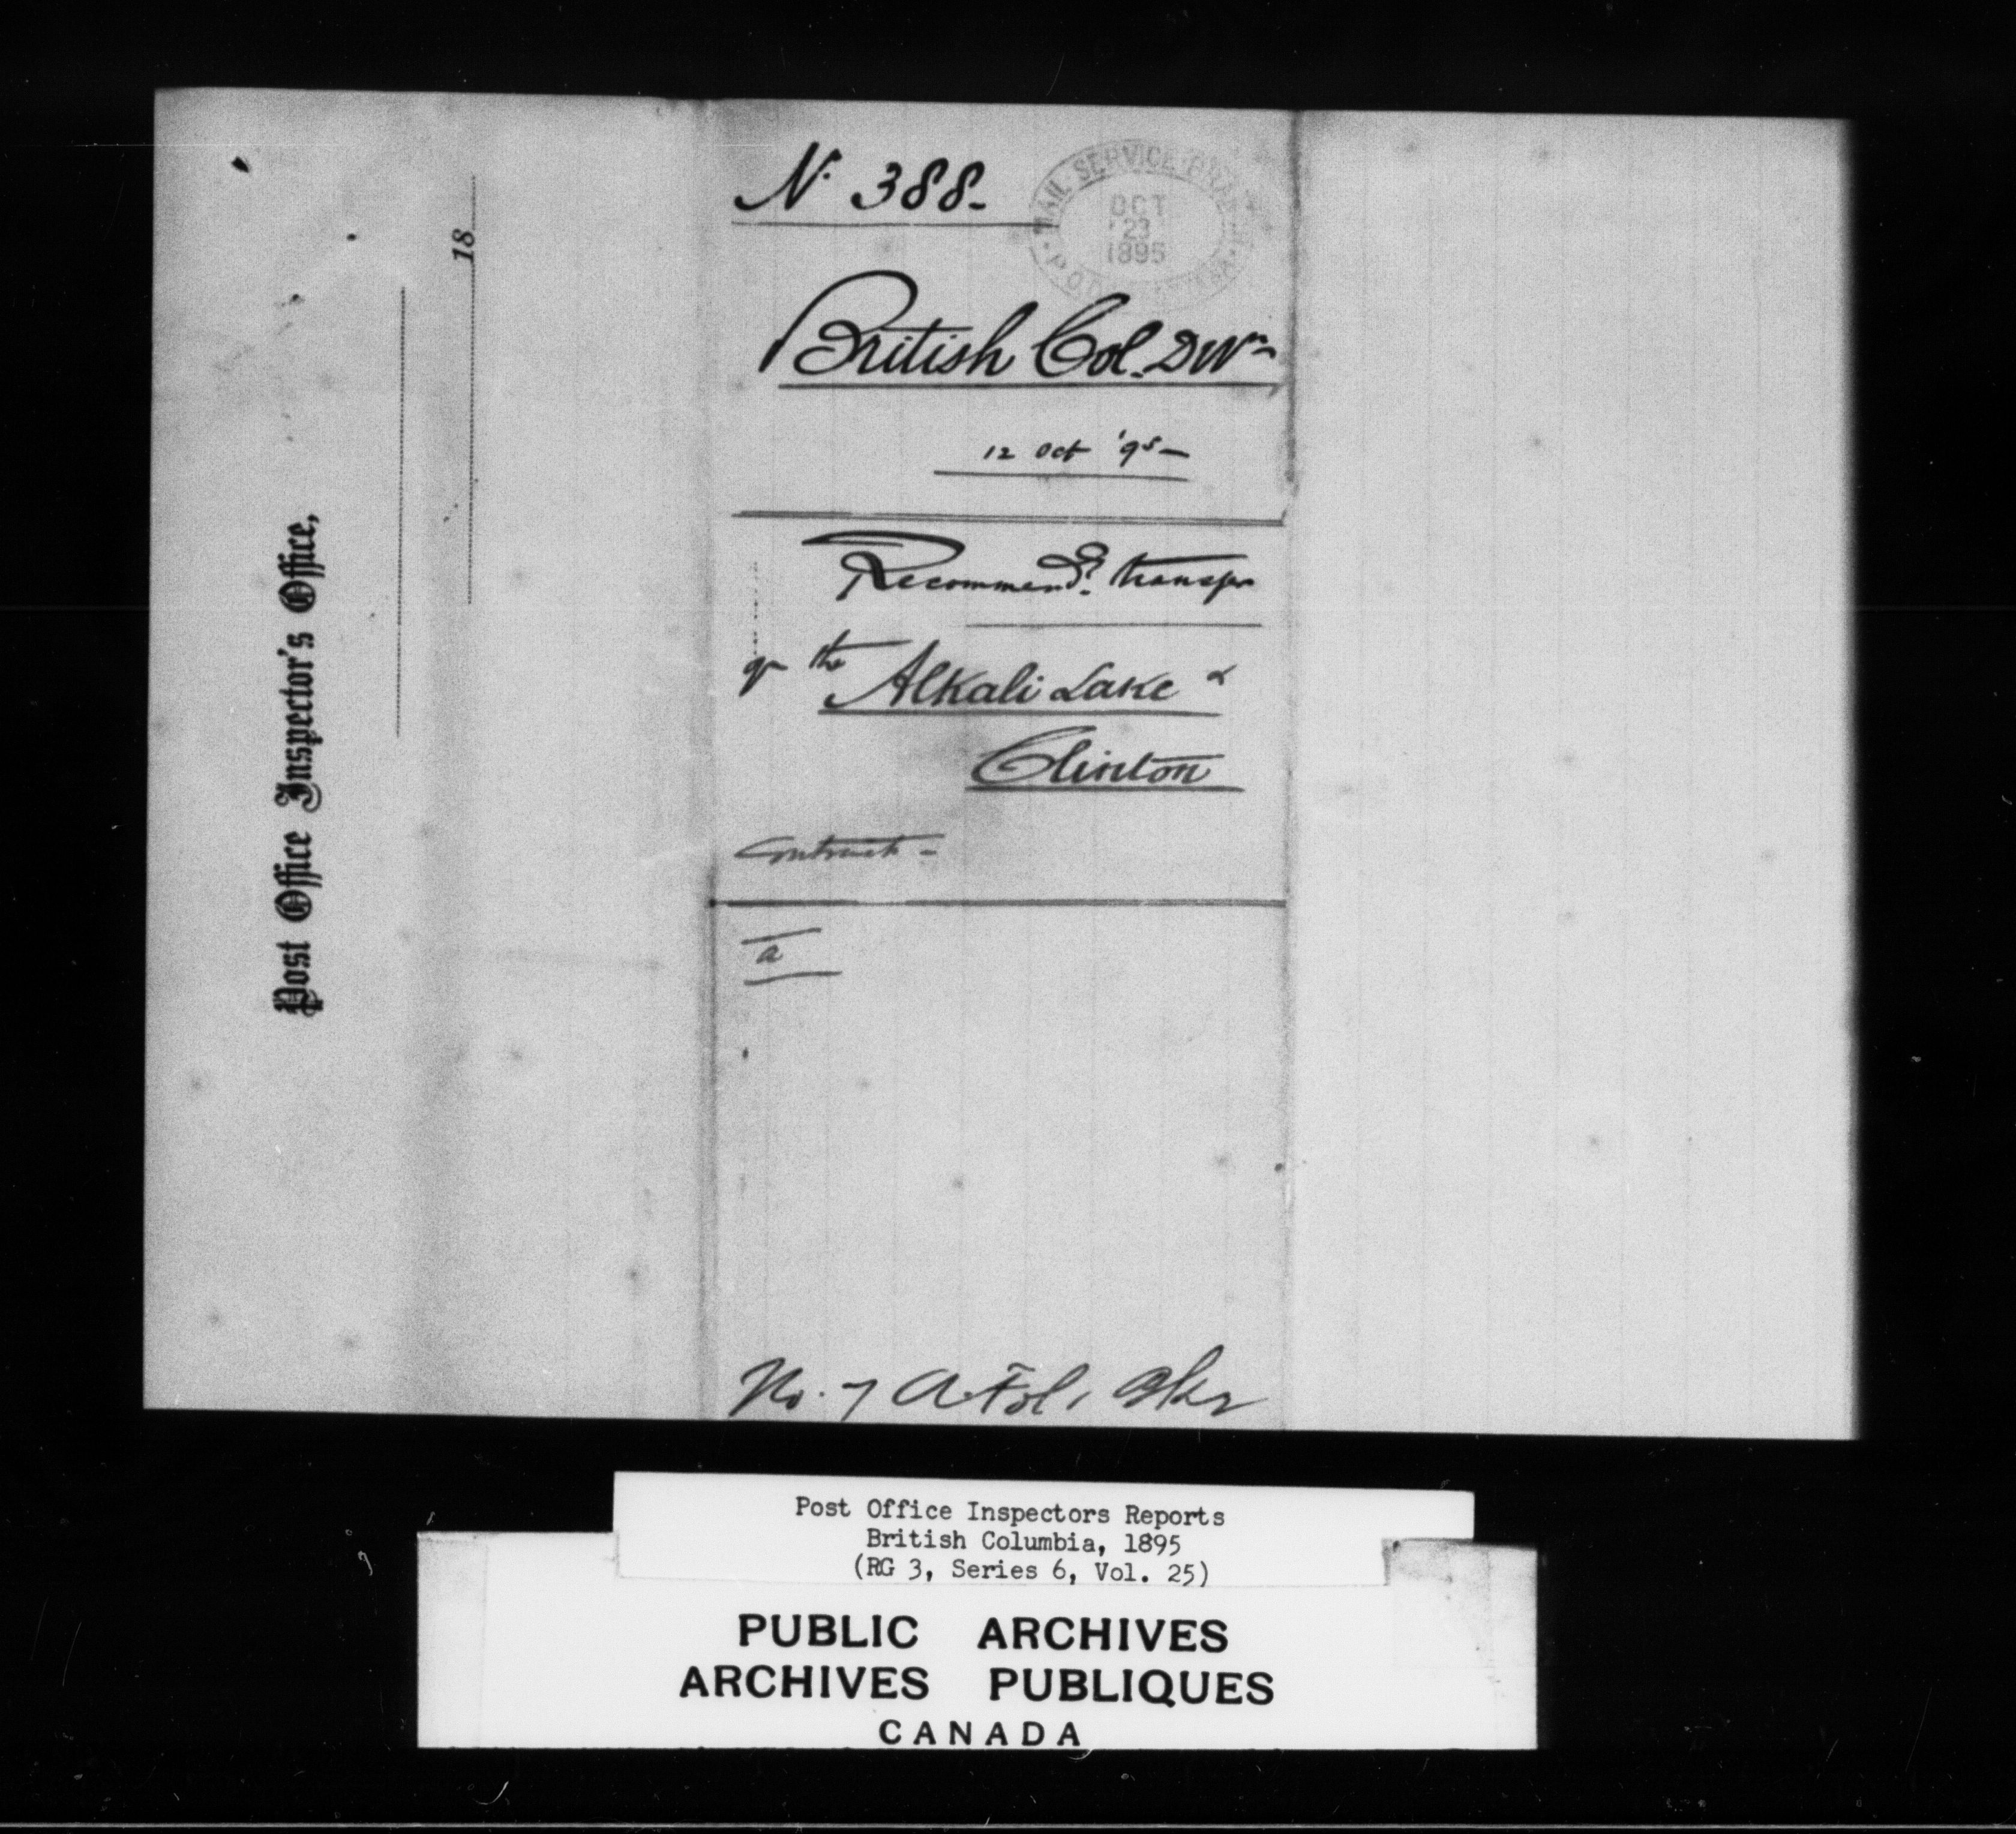 Post Office Inspector's Office,
18
N. 388-
MAIL SERVICE BRANCH
OCT
23
1895
British Col. Dvn
12 Oct '95-
Recommendg transfer
of the Alkali Lake &
Clinton
Contract -
a
No. 7 A. Fol.
Post Office Inspectors Reports
British Columbia, 1895
(RG 3, Series 6, Vol. 25)
PUBLIC ARCHIVES
ARCHIVES PUBLIQUES
CANADA